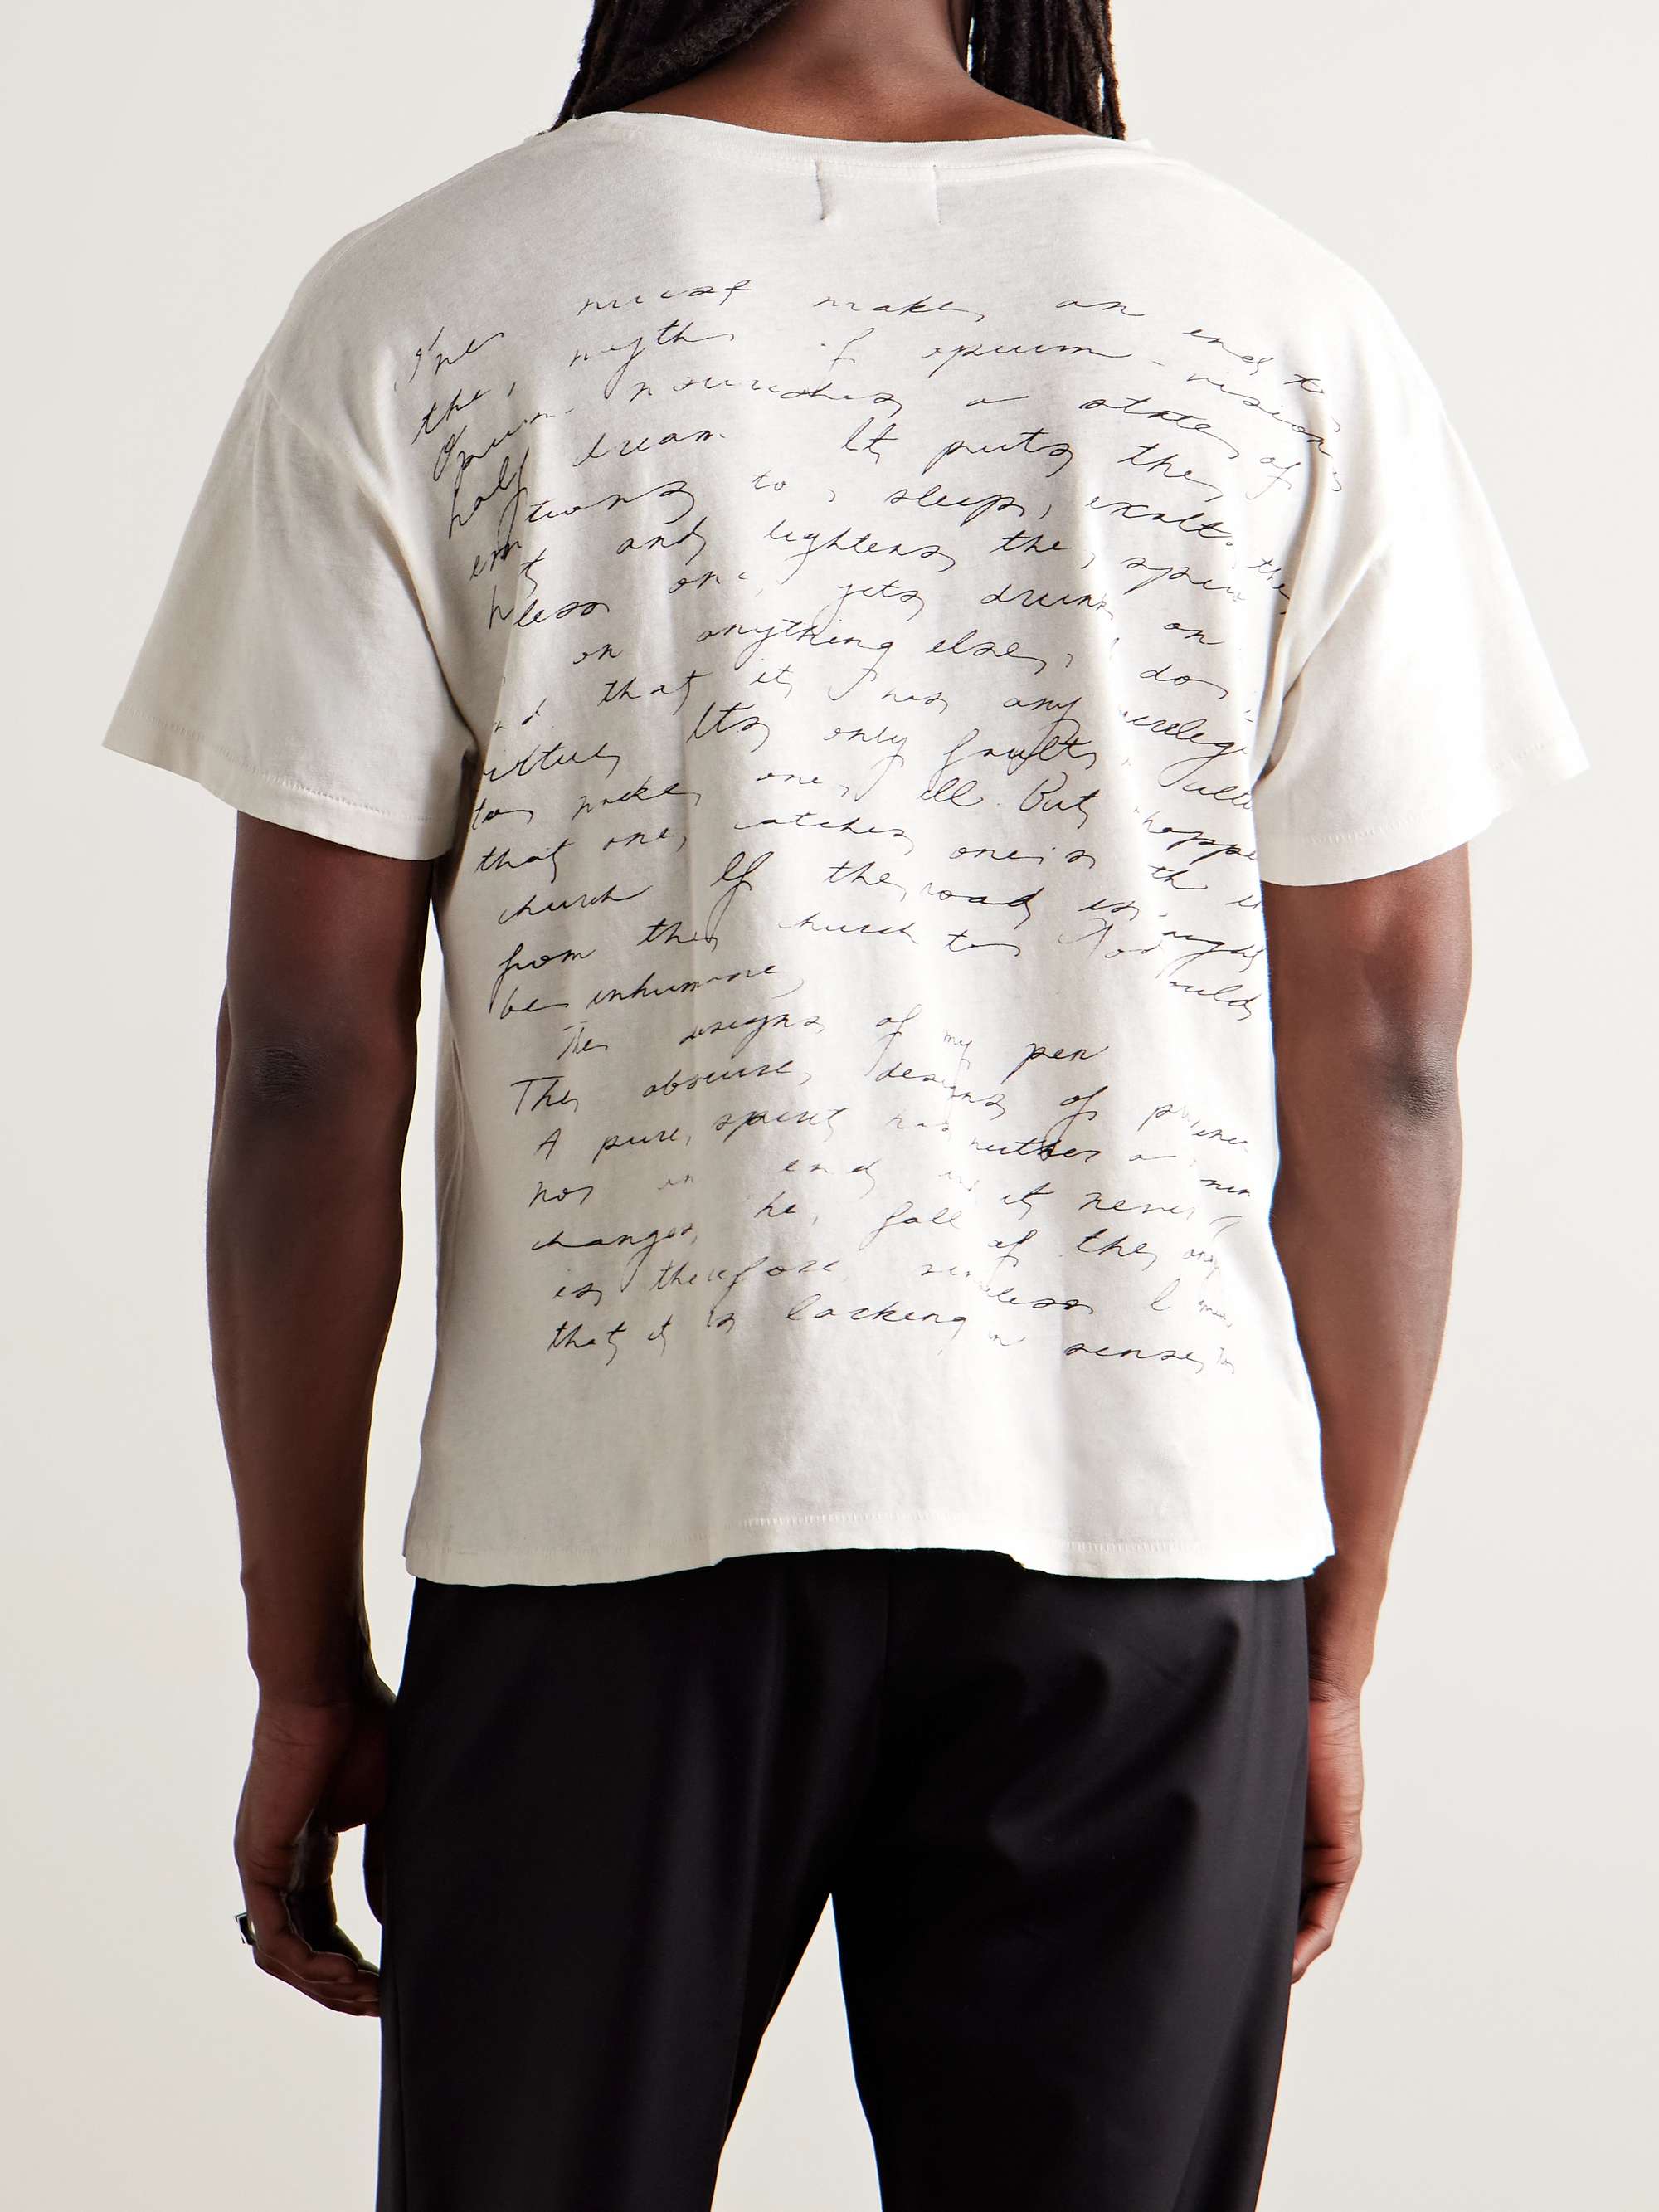 One must make an end to
the myth of opium-visions
Opium nourishes a state of
half dream It puts the
emotions to sleep, exalts the
and lightens the
less one gets drunk on
on anything else, I do
that it has any
virtue Its only fault
to make one ill. But
that one catches one's
church If the road is
from the church to God would
be inhumane
The designs of my pen
The obscure designs of
A pure spirit has neither a
nor an end it never
changes, he fall of the
is therefore senseless I
that it is lacking in sense,